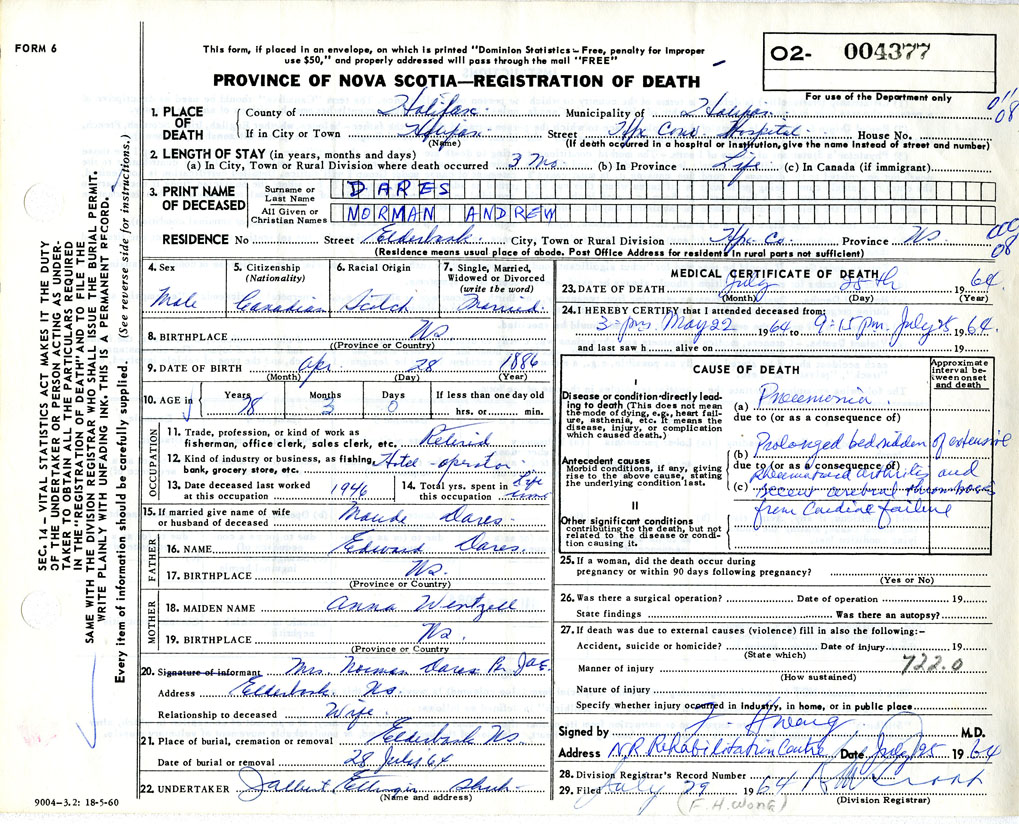 FORM 6
This form, if placed in an envelope, on which is printed "Dominion Statistics – Free, penalty for improper
use $50," and properly addressed will pass through the mail "FREE"
PROVINCE OF NOVA SCOTIA—REGISTRATION OF DEATH
02- 004377
For use of the Department only
011
08
1. PLACE OF DEATH
County of Halifax Municipality of Halifax
If in City or Town Halifax Street Hfx Conv. Hospital House No.
(Name) (If death occurred in a hospital or institution, give the name instead of street and number)
2. LENGTH OF STAY (in years, months and days)
(a) In City, Town or Rural Division where death occurred 3 Mo. (b) In Province Life (c) In Canada (if immigrant)
3. PRINT NAME OF DECEASED
Surname or Last Name DARES
All Given or Christian Names NORMAN ANDREW
RESIDENCE No Street Elderbank City, Town or Rural Division Hfx Co. Province Ns
08
(Residence means usual place of abode. Post Office Address for residents in rural parts not sufficient)
4. Sex Male
5. Citizenship (Nationality) Canadian
6. Racial Origin Scotch
7. Single, Married, Widowed or Divorced (write the word) Married
8. BIRTHPLACE Ns
(Province or Country)
9. DATE OF BIRTH Apr. 28 1886
(Month) (Day) (Year)
10. AGE in Years 78 Months 3 Days 0 If less than one day old hrs. or min.
OCCUPATION
11. Trade, profession, or kind of work as
fisherman, office clerk, sales clerk, etc. Retired
12. Kind of industry or business, as fishing,
bank, grocery store, etc. Hotel-operator
13. Date deceased last worked
at this occupation 1946
14. Total yrs. spent in
this occupation Life time
15. If married give name of wife
or husband of deceased Maude Dares
FATHER
16. NAME Edward Dares.
17. BIRTHPLACE Ns.
(Province or Country)
MOTHER
18. MAIDEN NAME Anna Wentzell
19. BIRTHPLACE Ns.
(Province or Country)
20. Signature of informant Mrs. Norman Dares Per J.a.E.
Address Elderbank Ns.
Relationship to deceased Wife.
21. Place of burial, cremation or removal Elderbank Ns.
Date of burial or removal 28 July 64
22. UNDERTAKER Ettinger
(Name and address)
9004–3.2: 18-5-60
MEDICAL CERTIFICATE OF DEATH
23. DATE OF DEATH July 25th 1964
(Month) (Day) (Year)
24. I HEREBY CERTIFY that I attended deceased from:
3 pm. May 22 1964 to 9:15 pm. July 25 1964.
and last saw h alive on 19
CAUSE OF DEATH
Approximate interval between onset and death
I
Disease or condition directly leading to death (This does not mean the mode of dying, e.g., heart failure, asthenia, etc. It means the disease, injury, or complication which caused death.)
(a) Pneumonia.
due to (or as a consequence of)
Antecedent causes
Morbid conditions, if any, giving rise to the above cause, stating the underlying condition last.
(b) Prolonged bedridden of extensive
due to (or as a consequence of)
rheumatoid arthritis and
(c) recent cerebral thrombosis
from Cardiac failure
II
Other significant conditions contributing to the death, but not related to the disease or condition causing it.
25. If a woman, did the death occur during
pregnancy or within 90 days following pregnancy?
(Yes or No)
26. Was there a surgical operation? Date of operation 19
State findings Was there an autopsy?
27. If death was due to external causes (violence) fill in also the following:–
Accident, suicide or homicide? Date of injury 19
(State which)
Manner of injury 722.0
(How sustained)
Nature of injury
Specify whether injury occurred in industry, in home, or in public place
Signed by F. H. Wong M.D.
Address N.S. Rehabilitation Centre Date July 25 1964
28. Division Registrar's Record Number
29. Filed July 29 1964
(F.H. Wong) (Division Registrar)
SEC. 14– VITAL STATISTICS ACT MAKES IT THE DUTY
OF THE UNDERTAKER OR PERSON ACTING AS UNDER-
TAKER TO OBTAIN ALL THE PARTICULARS REQUIRED
IN THE "REGISTRATION OF DEATH" AND TO FILE THE
SAME WITH THE DIVISION REGISTRAR WHO SHALL ISSUE THE BURIAL PERMIT.
WRITE PLAINLY WITH UNFADING INK. THIS IS A PERMANENT RECORD.
Every item of information should be carefully supplied. (See reverse side for instructions.)